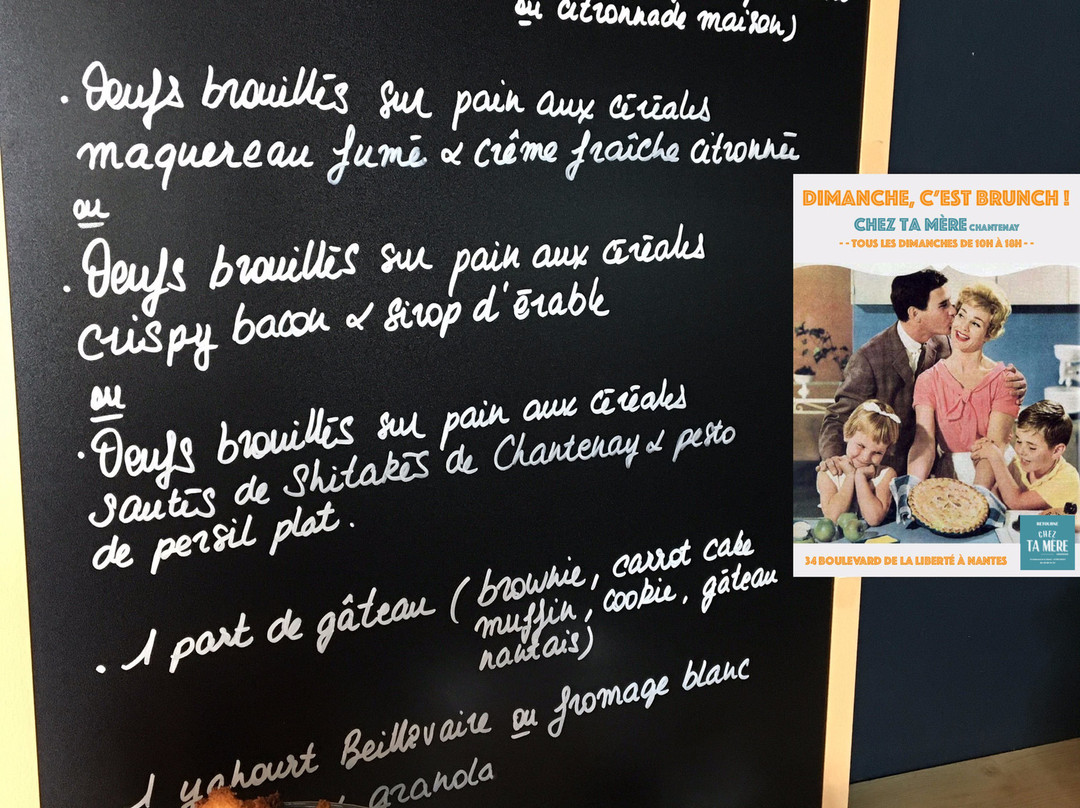 ou citronnade maison)
. Oeufs brouillés sur pain aux céréales
maquereau fumé & crême fraîche citronnée
ou
. Oeufs brouillés sur pain aux céréales
crispy bacon & sirop d'érable
ou
. Oeufs brouillés sur pain aux céréales
sautés de Shitakés de Chantenay & pesto
de persil plat.
. 1 part de gâteau (brownie, carrot cake
muffin, cookie, gâteau
nantais)
1 yahourt Beillevaire ou fromage blanc
granola
DIMANCHE, C'EST BRUNCH !
CHEZ TA MÈRE CHANTENAY
- - TOUS LES DIMANCHES DE 10H À 18H - -
CHEZ
TA MÈRE
34 BOULEVARD DE LA LIBERTÉ À NANTES